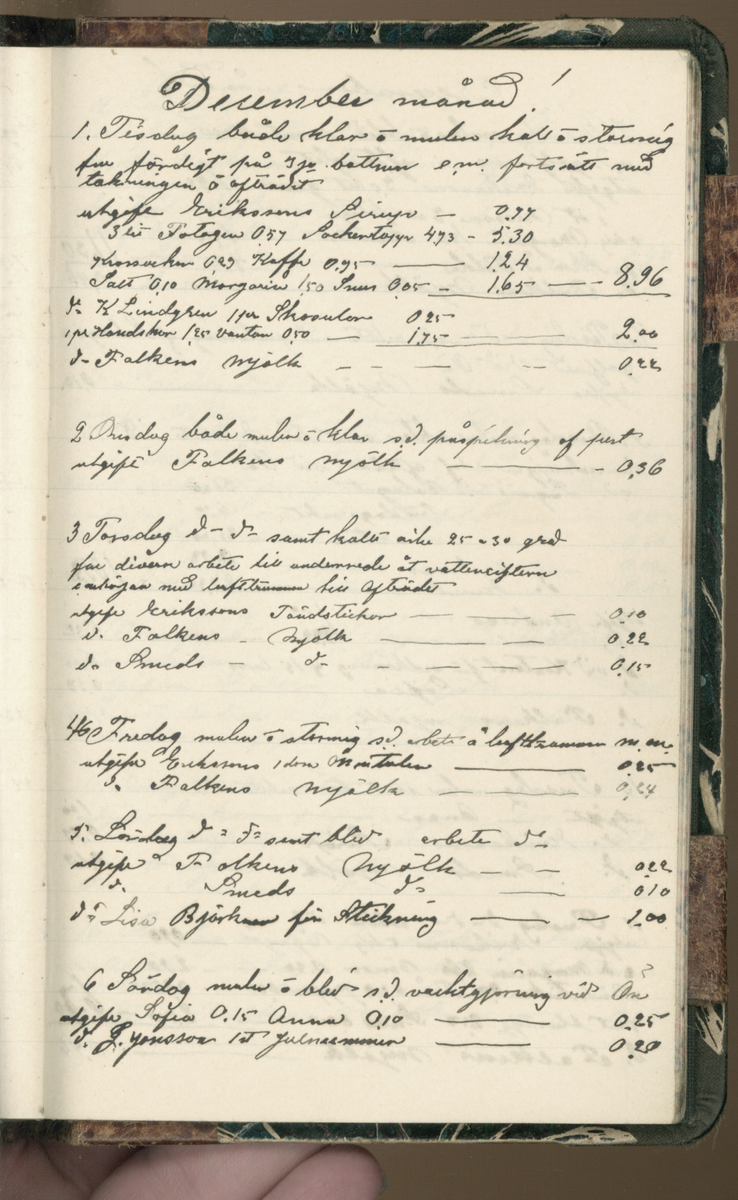 December månad!
1. Tisdag både klar o mulen kalt o stormig
for färdigt på bottnen e.m. fortsätt med
takningen å afträdet
utgift Erikssons Sirup — 0.77
3 lit Fotogen 0.57 Sockertopp 4.73 - 5.30
Korssocker 0.29 Kaffe 0.95 — 1.24
Salt 0.10 Margarin 1.50 Snus 0.05 - 1.65 — 8.96
do K Lindgren 1 par Skosulor 0.25
1 pr Handskar 1.25 vantar 0.50 — 1.75 — 2.00
do Falkens Mjölk — 0.22
2 Onsdag både mulen o klar s.d. påspikning af
utgift Falkens Mjölk — 0.36
3 Torsdag d- do samt kallt cirka 25 a 30 grad
for divers arbete till underrede åt vattencistern
med lufttrumman till Afträdet
utgift Erikssons Tändstickor — 0.10
d. Falkens - Mjölk — 0.22
do Smeds - d- — 0.15
4 Fredag mulen o stormig s.d. arbete å lufttrumman m.m.
utgift Erikssons 1 dosa — 0.25
d. Falkens Mjölk — 0.24
5. Lördag d= do samt blid arbete do
utgift Falkens Mjölk — 0.22
d. Smeds do — 0.10
do Lisa Björkman för Stickning — 1.00
6 Söndag mulen o blid s.d. vacktgjörning vid Ån
utgift Sofia 0.15 Anna 0.10 — 0.25
d. J. Jonsson 1st Julnummer — 0.20